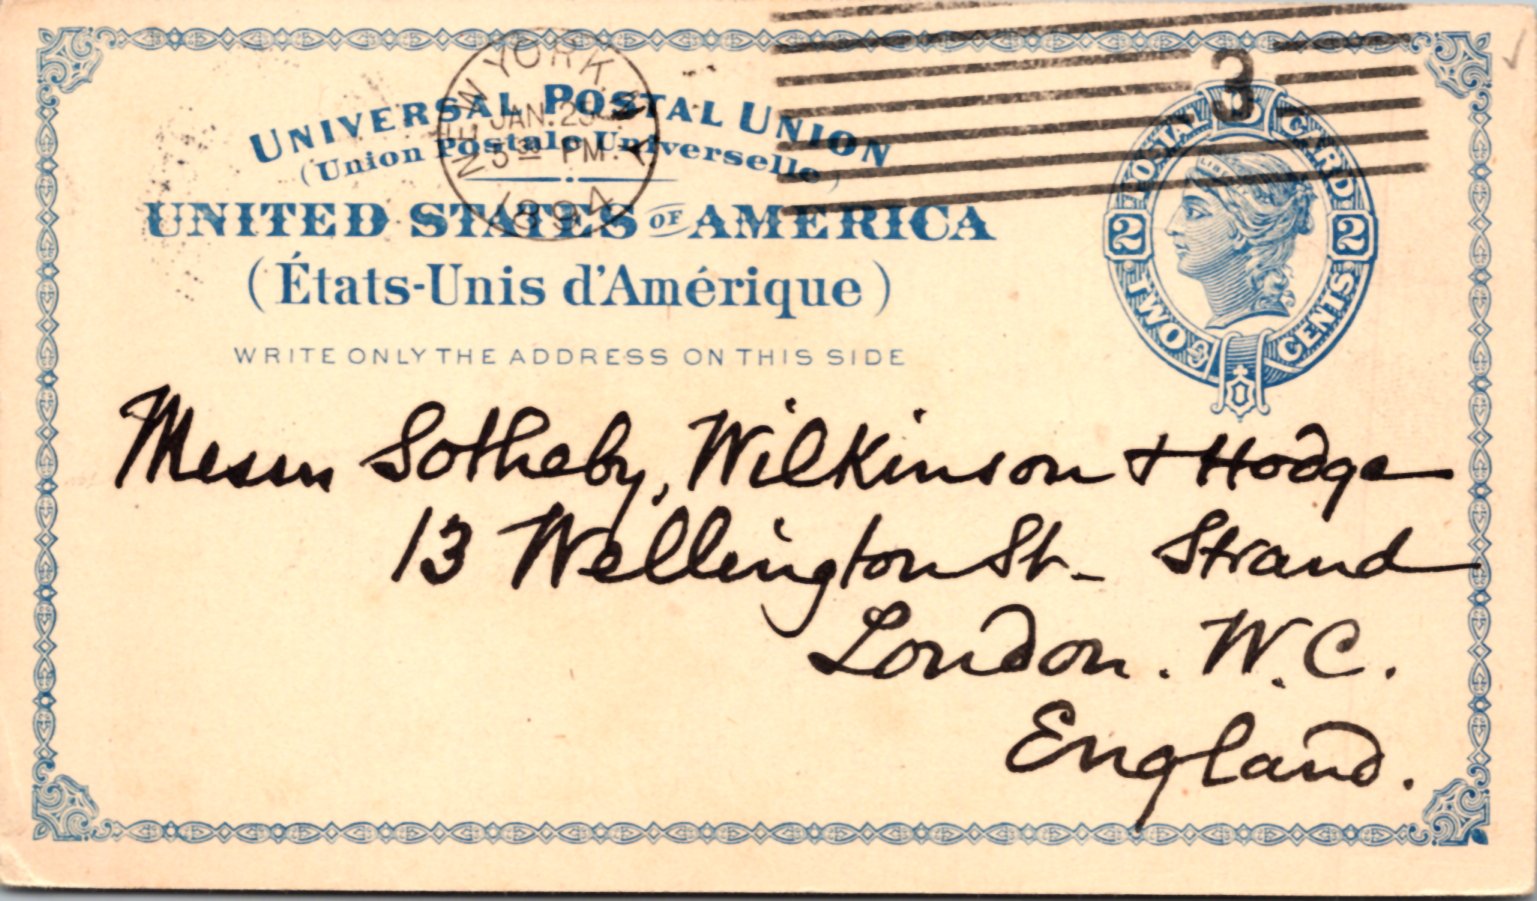 UNIVERSAL POSTAL UNION
(Union Postale Universelle)
UNITED STATES OF AMERICA
(États-Unis d'Amérique)
WRITE ONLY THE ADDRESS ON THIS SIDE
NEW YORK
JAN. 25
5 30 PM.
1894
3
POSTAL CARD
2 2
TWO CENTS
Messrs Sotheby, Wilkinson + Hodge
13 Wellington St. Strand
London. W.C.
England.